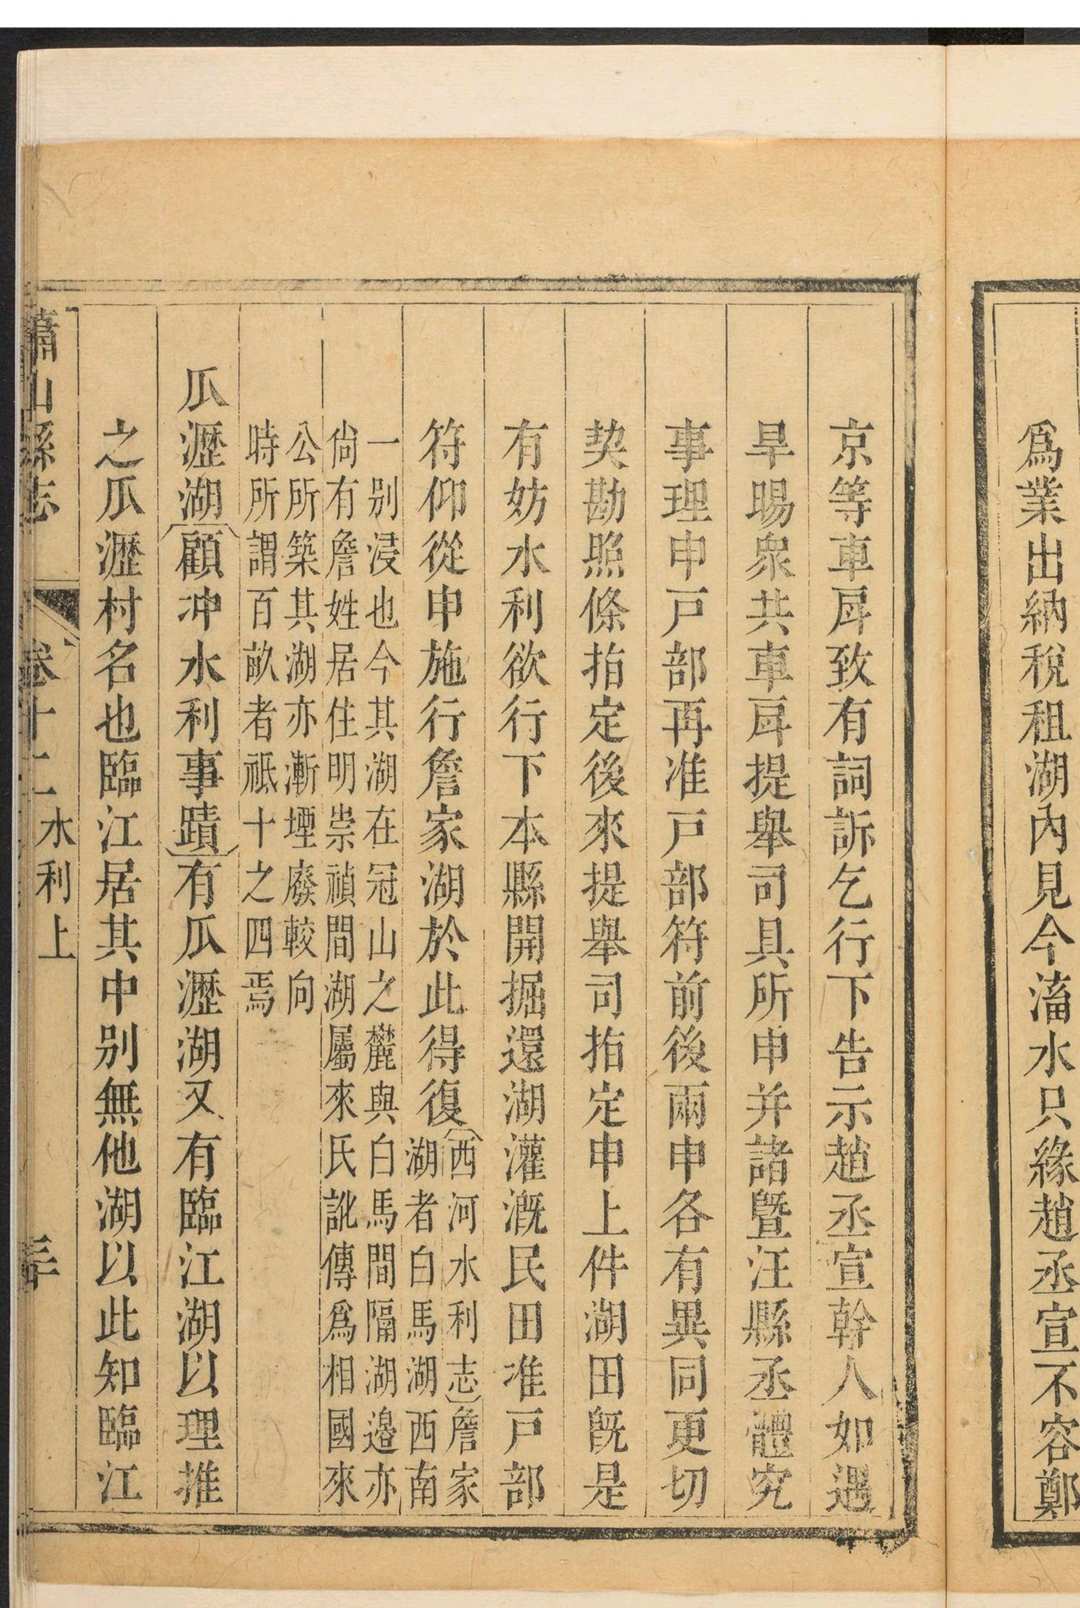 爲業出納稅租湖內見今滀水只緣趙丞宣不容鄭
京等車戽致有詞訴乞行下告示趙丞宣幹人如遇
旱暘衆共車戽提舉司具所申并諸曁汪縣丞體究
事理申戸部再准戸部符前後兩申各有異同更切
契勘照條指定後來提舉司指定申上件湖田旣是
有妨水利欲行下本縣開掘還湖灌漑民田准戸部
符仰從申施行詹家湖於此得復〔西河水利志〕詹家
湖者白馬湖西南
一别浸也今其湖在冠山之麓與白馬間隔湖邉亦
尙有詹姓居住明崇禎間湖屬來氏訛傳爲相國來
公所築其湖亦漸堙廢較向
時所謂百畝者祗十之四焉
瓜瀝湖〔顧冲水利事蹟〕有瓜瀝湖又有臨江湖以理推
之瓜瀝村名也臨江居其中別無他湖以此知臨江
蕭山縣志
卷十二
水利上
三